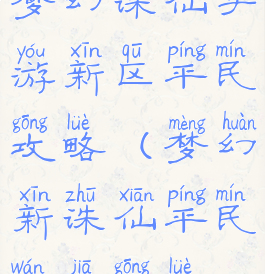 梦幻诛仙手
yóu xīn qū píng mín
游新区平民
gōng lüè mèng huàn
攻略（梦幻
xīn zhū xiān píng mín
新诛仙平民
wán jiā gōng lüè